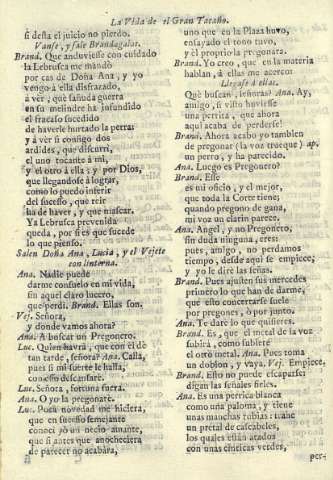 La Vida de el Gran Tacaño.
si desta el juicio no pierdo.
Vanse, y sale Brandagalas.
Brand. Que anduviesse con cuidado
la Lebrusca me mandò
por cas de Doña Ana, y yo
vengo à ella disfrazado,
à vèr, què sañuda guerra
en su melindre ha infundido
el fracaso sucedido
de haverle hurtado la perra:
y à vèr si consigo dos
ardides, què discurri,
el uno tocante à mi,
y el otro à ella: y por Dios,
que llegandose à lograr,
como lo puedo inferir
del sucesso, que reir
ha de haver, y que mascar.
Ya Lebrusca prevenida
queda, por si es que sucede
lo que pienso.
Salen Doña Ana, Lucia, y el Vejete
con linterna.
Ana. Nadie puede
darme consuelo en mi vida,
sin aquel claro lucero,
que perdi. Brand. Ellas son.
Vej. Señora,
y donde vamos ahora?
Ana. A buscar un Pregonero.
Luc. Quien havrà, que con èl dè
tan tarde, señora? Ana. Calla,
pues si mi suerte le halla,
consesso descansarè.
Luc. Señora, fortuna fuera.
Ana. O yo la pregonarè.
Luc. Poca novedad me hiciera,
que en sucesso semejante
conocì yo un necio amante,
que si antes que anocheciera
de parecer no acabàra,
uno que en la Plaza huvo,
ensayado el tono tuvo,
y el proprio la pregonàra.
Brand. Yo creo, que en la materia
hablan, à ellas me acerco:
Llegase à ellas.
Què buscan, señoras? Ana. Ay,
amigo, si visto huviesse
una perrita, que ahora
aqui acaba de perderse!
Brand. Ahora acabo yo tambien
de pregonar (la voz trueque) ap.
un perro, y ha parecido.
Ana. Luego es Pregonero?
Brand. Esse
es mi oficio, y el mejor,
que toda la Corte tiene;
quando pregono de gana,
mi voz un clarin parece.
Ana. Angel, y no Pregonero,
sin duda ninguna, eres:
pues, amigo, no perdamos
tiempo, desde aqui se empiece;
y yo le dirè las señas.
Brand. Pues ajusten sus mercedes
primero lo que han de darme,
què esto concertarse suele
por pregones, ò por junto.
Ana. Te darè lo que quisieres.
Brand. Es, que el metal de la voz
subirà, como subiere
el otro metal. Ana. Pues toma
un doblon, y vaya. Vej. Empiece.
Brand. Esto no puede escaparse:
digan las señales fieles.
Ana. Es una perrica blanca
como una paloma; y tiene
unas manchas rubias: trahe
un pretal de cascabeles,
los quales estàn atados
con unas cinticas verdes,
per-